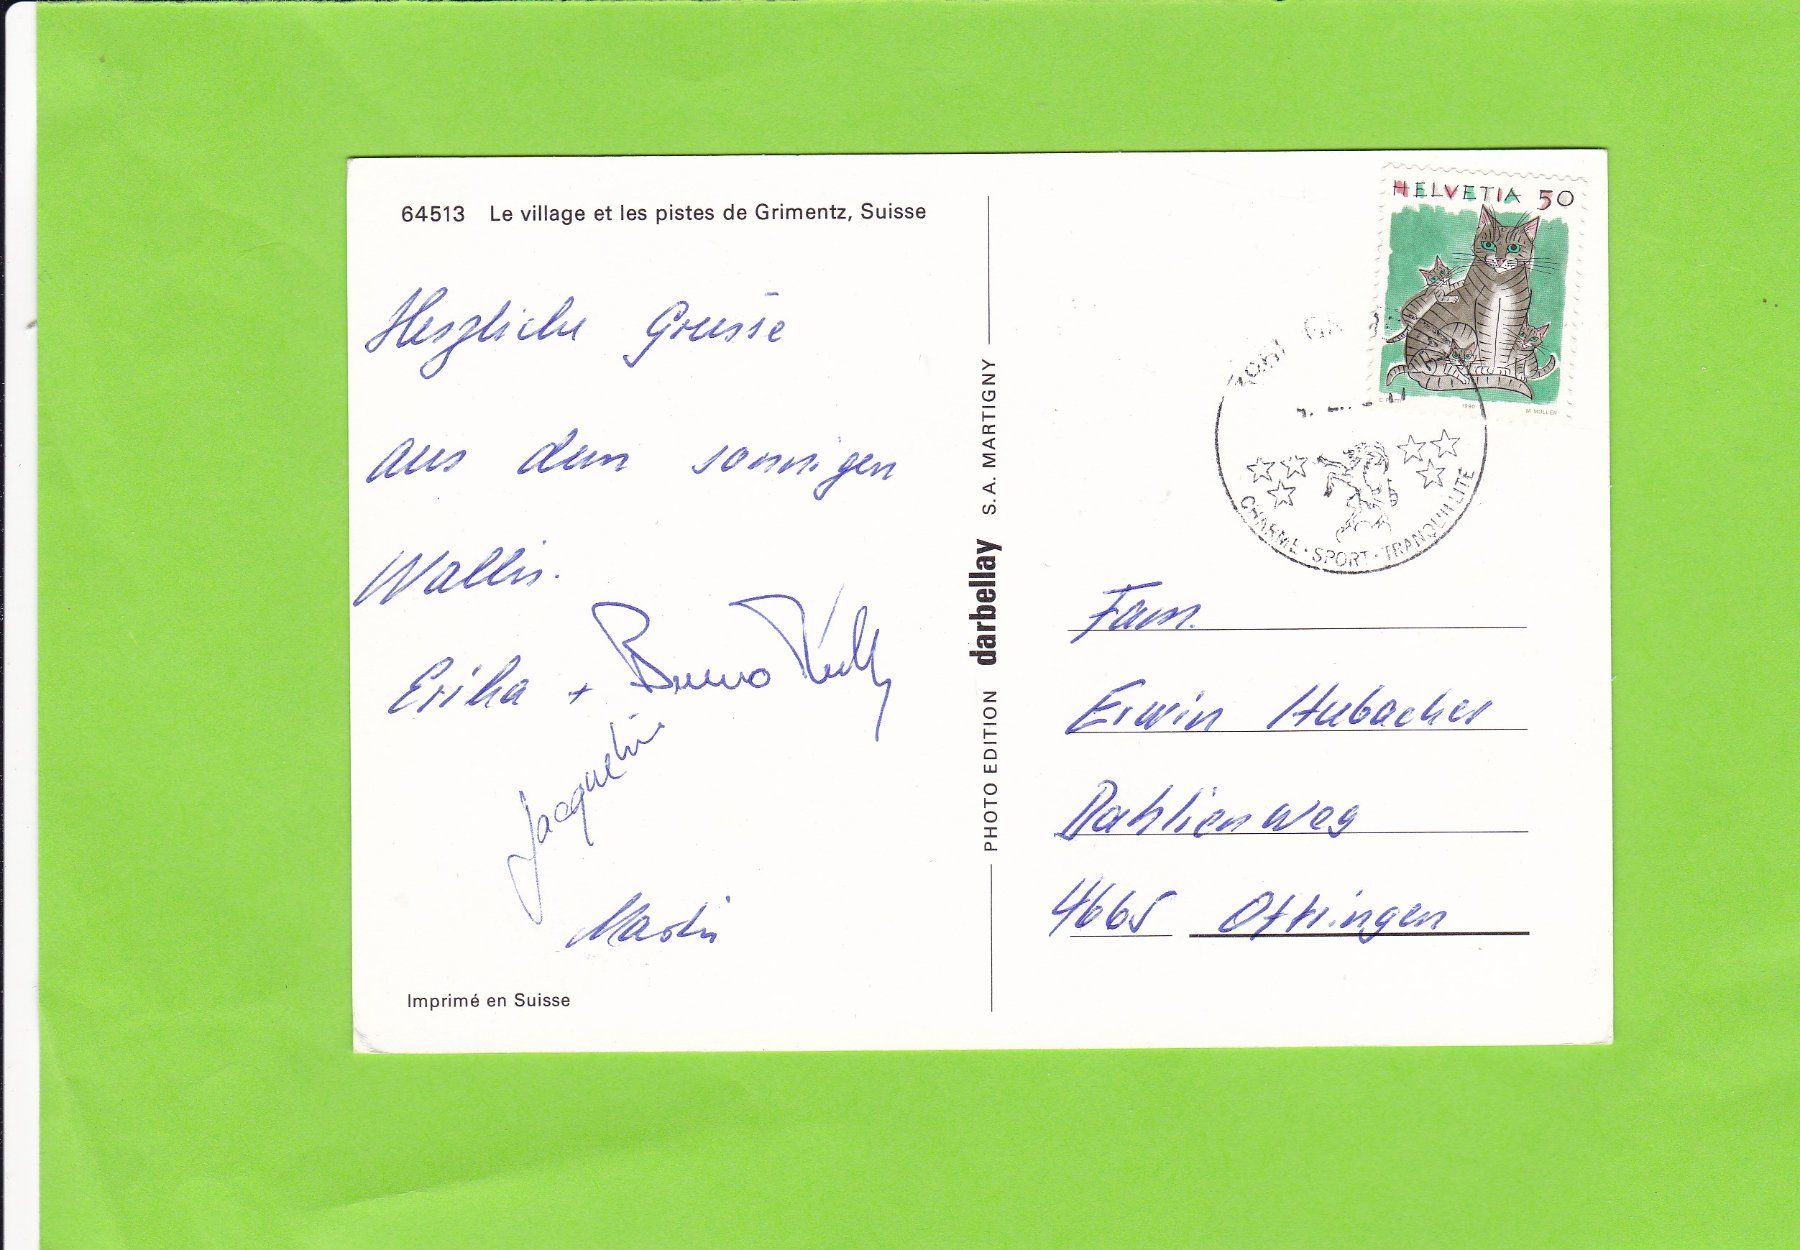 64513 Le village et les pistes de Grimentz, Suisse
Herzliche Grüsse
aus dem sonnigen
Wallis.
Erika + Bruno
Jacqueline
Martin
Imprimé en Suisse
PHOTO EDITION darbellay S.A. MARTIGNY
HELVETIA 50
1990 M. MÜLLER
CHARME · SPORT · TRANQUILLITE
Fam.
Erwin Hubacher
Dahlienweg
4665 Oftringen